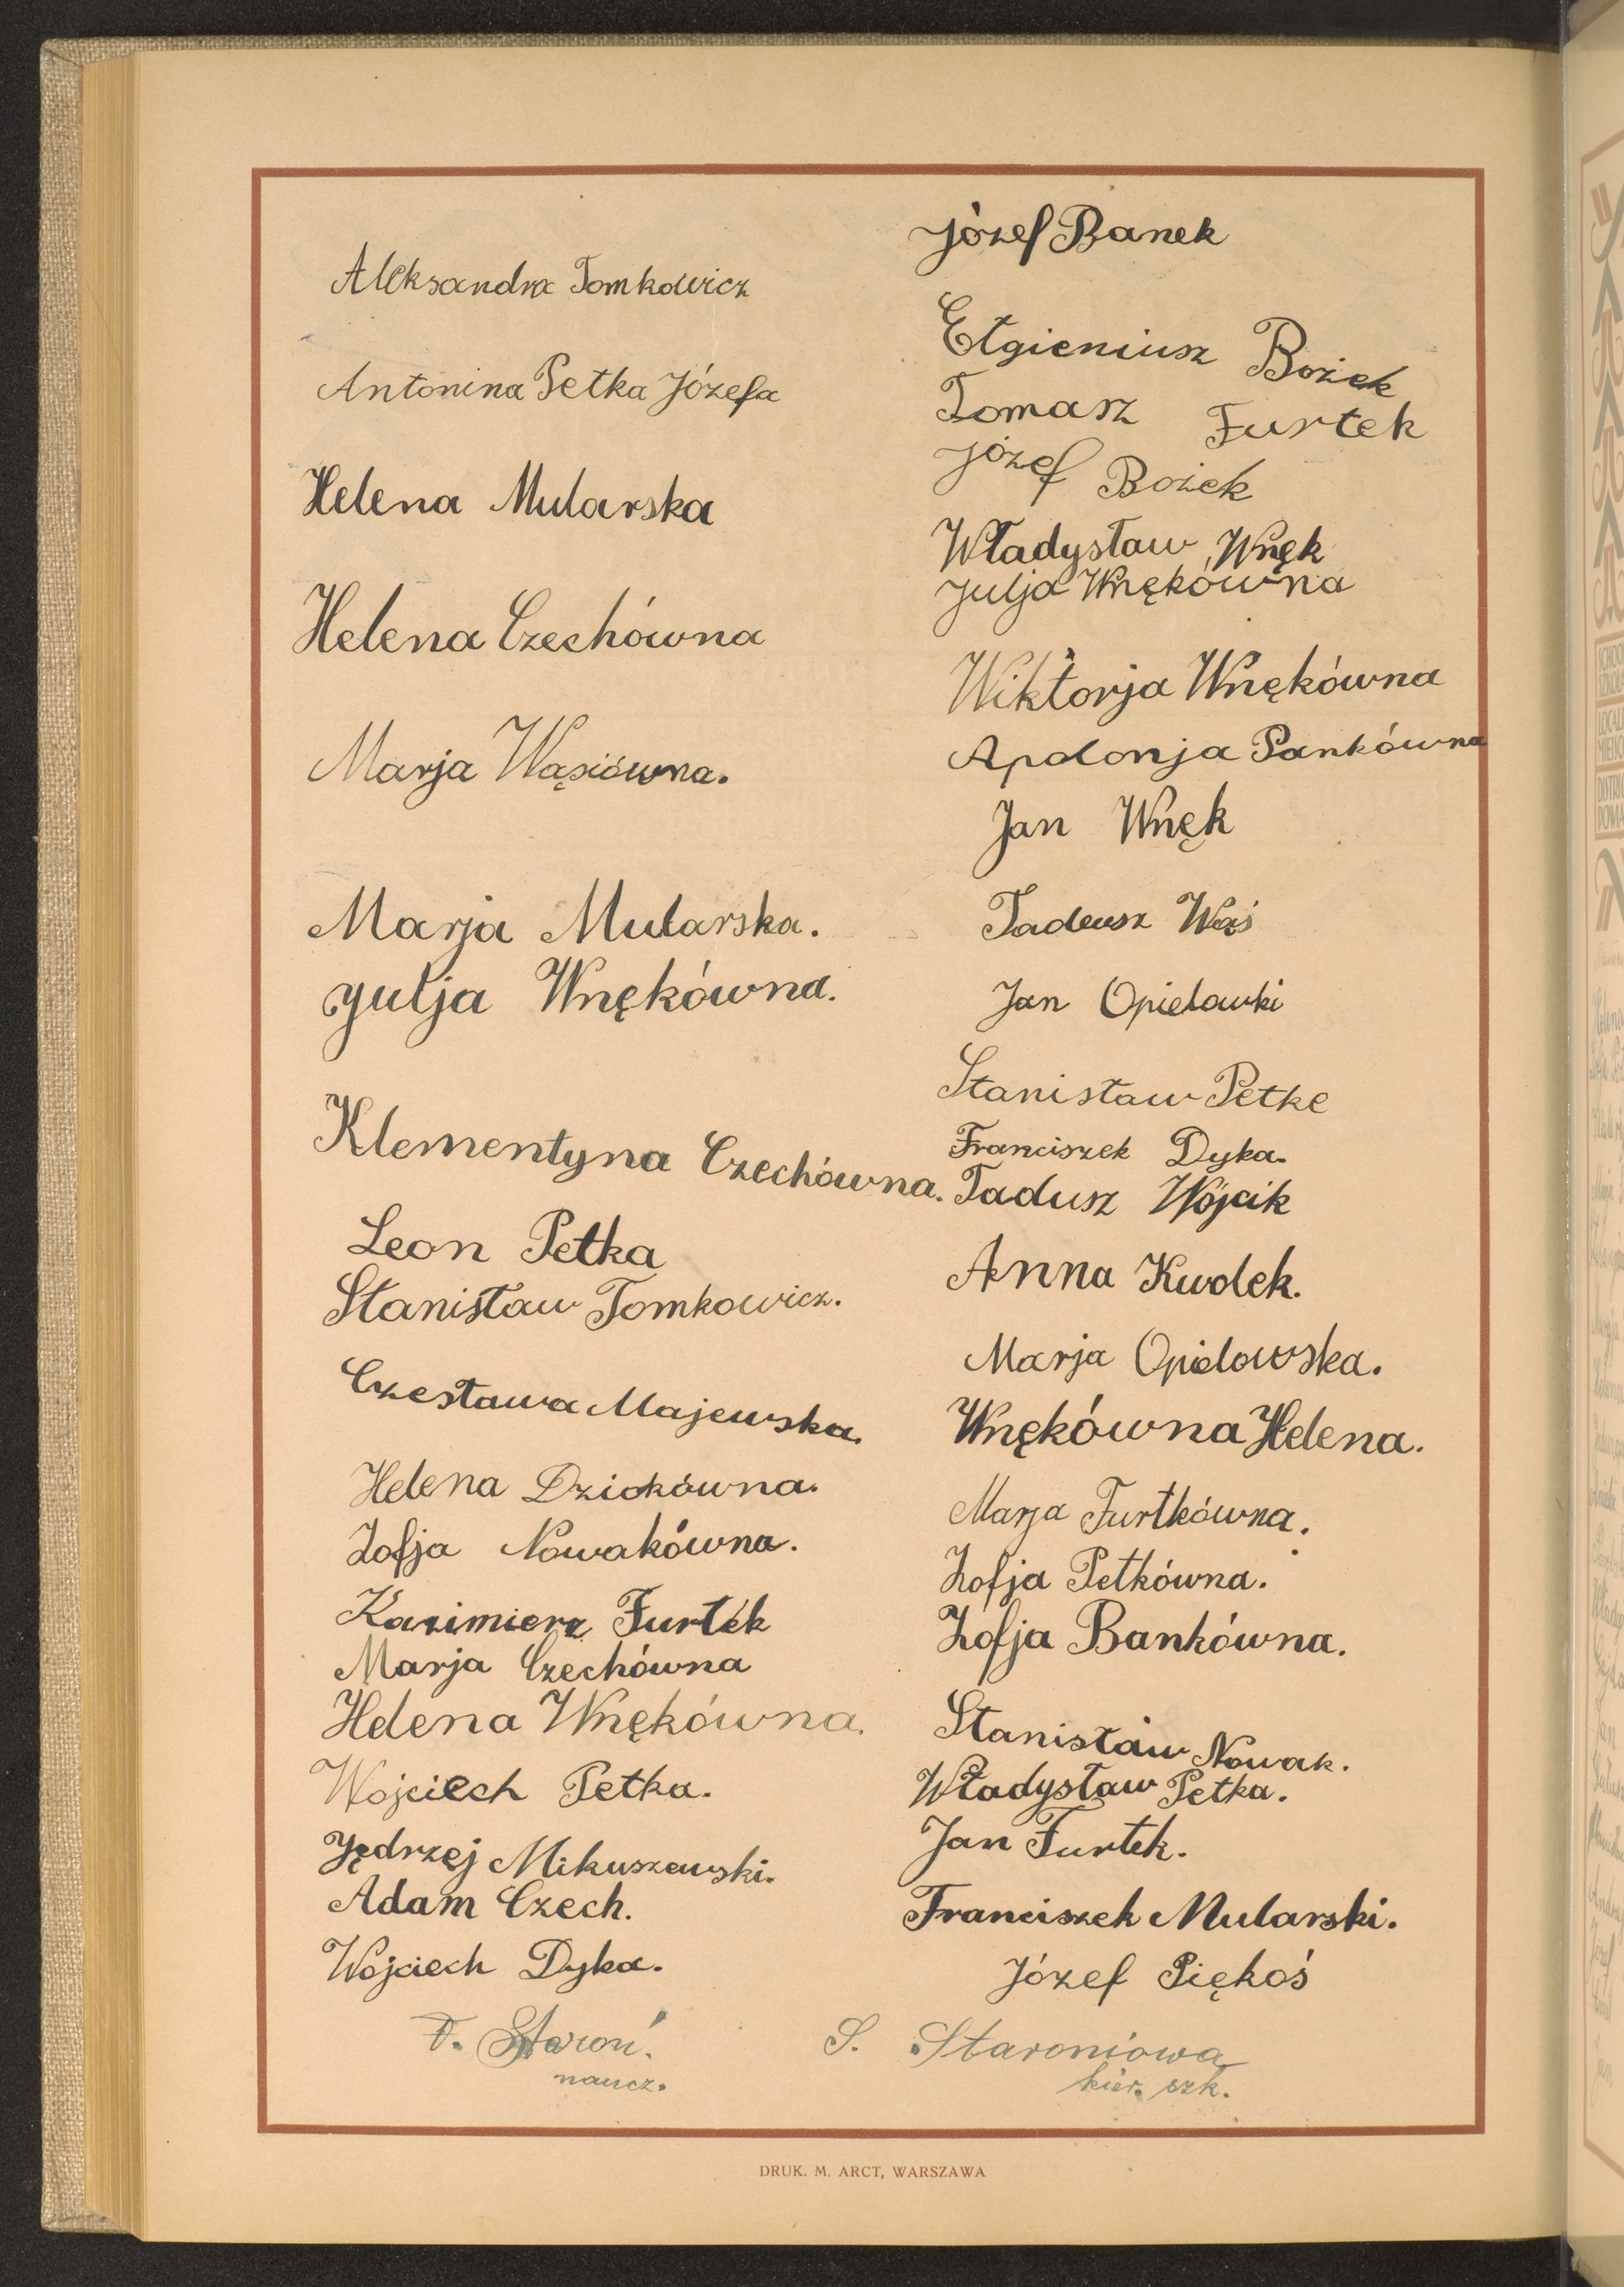 Aleksandra Tomkowicz
Antonina Petka Józefa
Helena Mularska
Helena Czechówna
Marja Wąsiówna.
Marja Mularska.
Julja Wnękówna.
Klementyna Czechówna.
Leon Petka
Stanisław Tomkowicz.
Czesława Majewska.
Helena Dziekówna.
Zofja Nowakówna.
Kazimierz Furtek
Marja Czechówna
Helena Wnękówna.
Wojciech Petka.
Jędrzej Mikuszewski.
Adam Czech.
Wojciech Dyka.
Staroń.
naucz.
Józef Banek
Bożek
Tomasz Furtek
Józef Bożek
Władysław Wnęk
Julja Wnękówna
Wiktorja Wnękówna
Apolonja Pankówna
Jan Wnęk
Tadeusz Wąś
Jan Opielowki
Stanisław Petke
Franciszek Dyka.
Tadusz Wójcik
Anna Kwolek.
Marja Opielowska.
Wnękówna Helena.
Marja Furtkówna.
Zofja Petkówna.
Zofja Bankówna.
Stanisław Nowak.
Władysław Petka.
Jan Furtek.
Franciszek Mularski.
Józef Piękoś
S. Staroniowa
kier. szk.
DRUK. M. ARCT, WARSZAWA